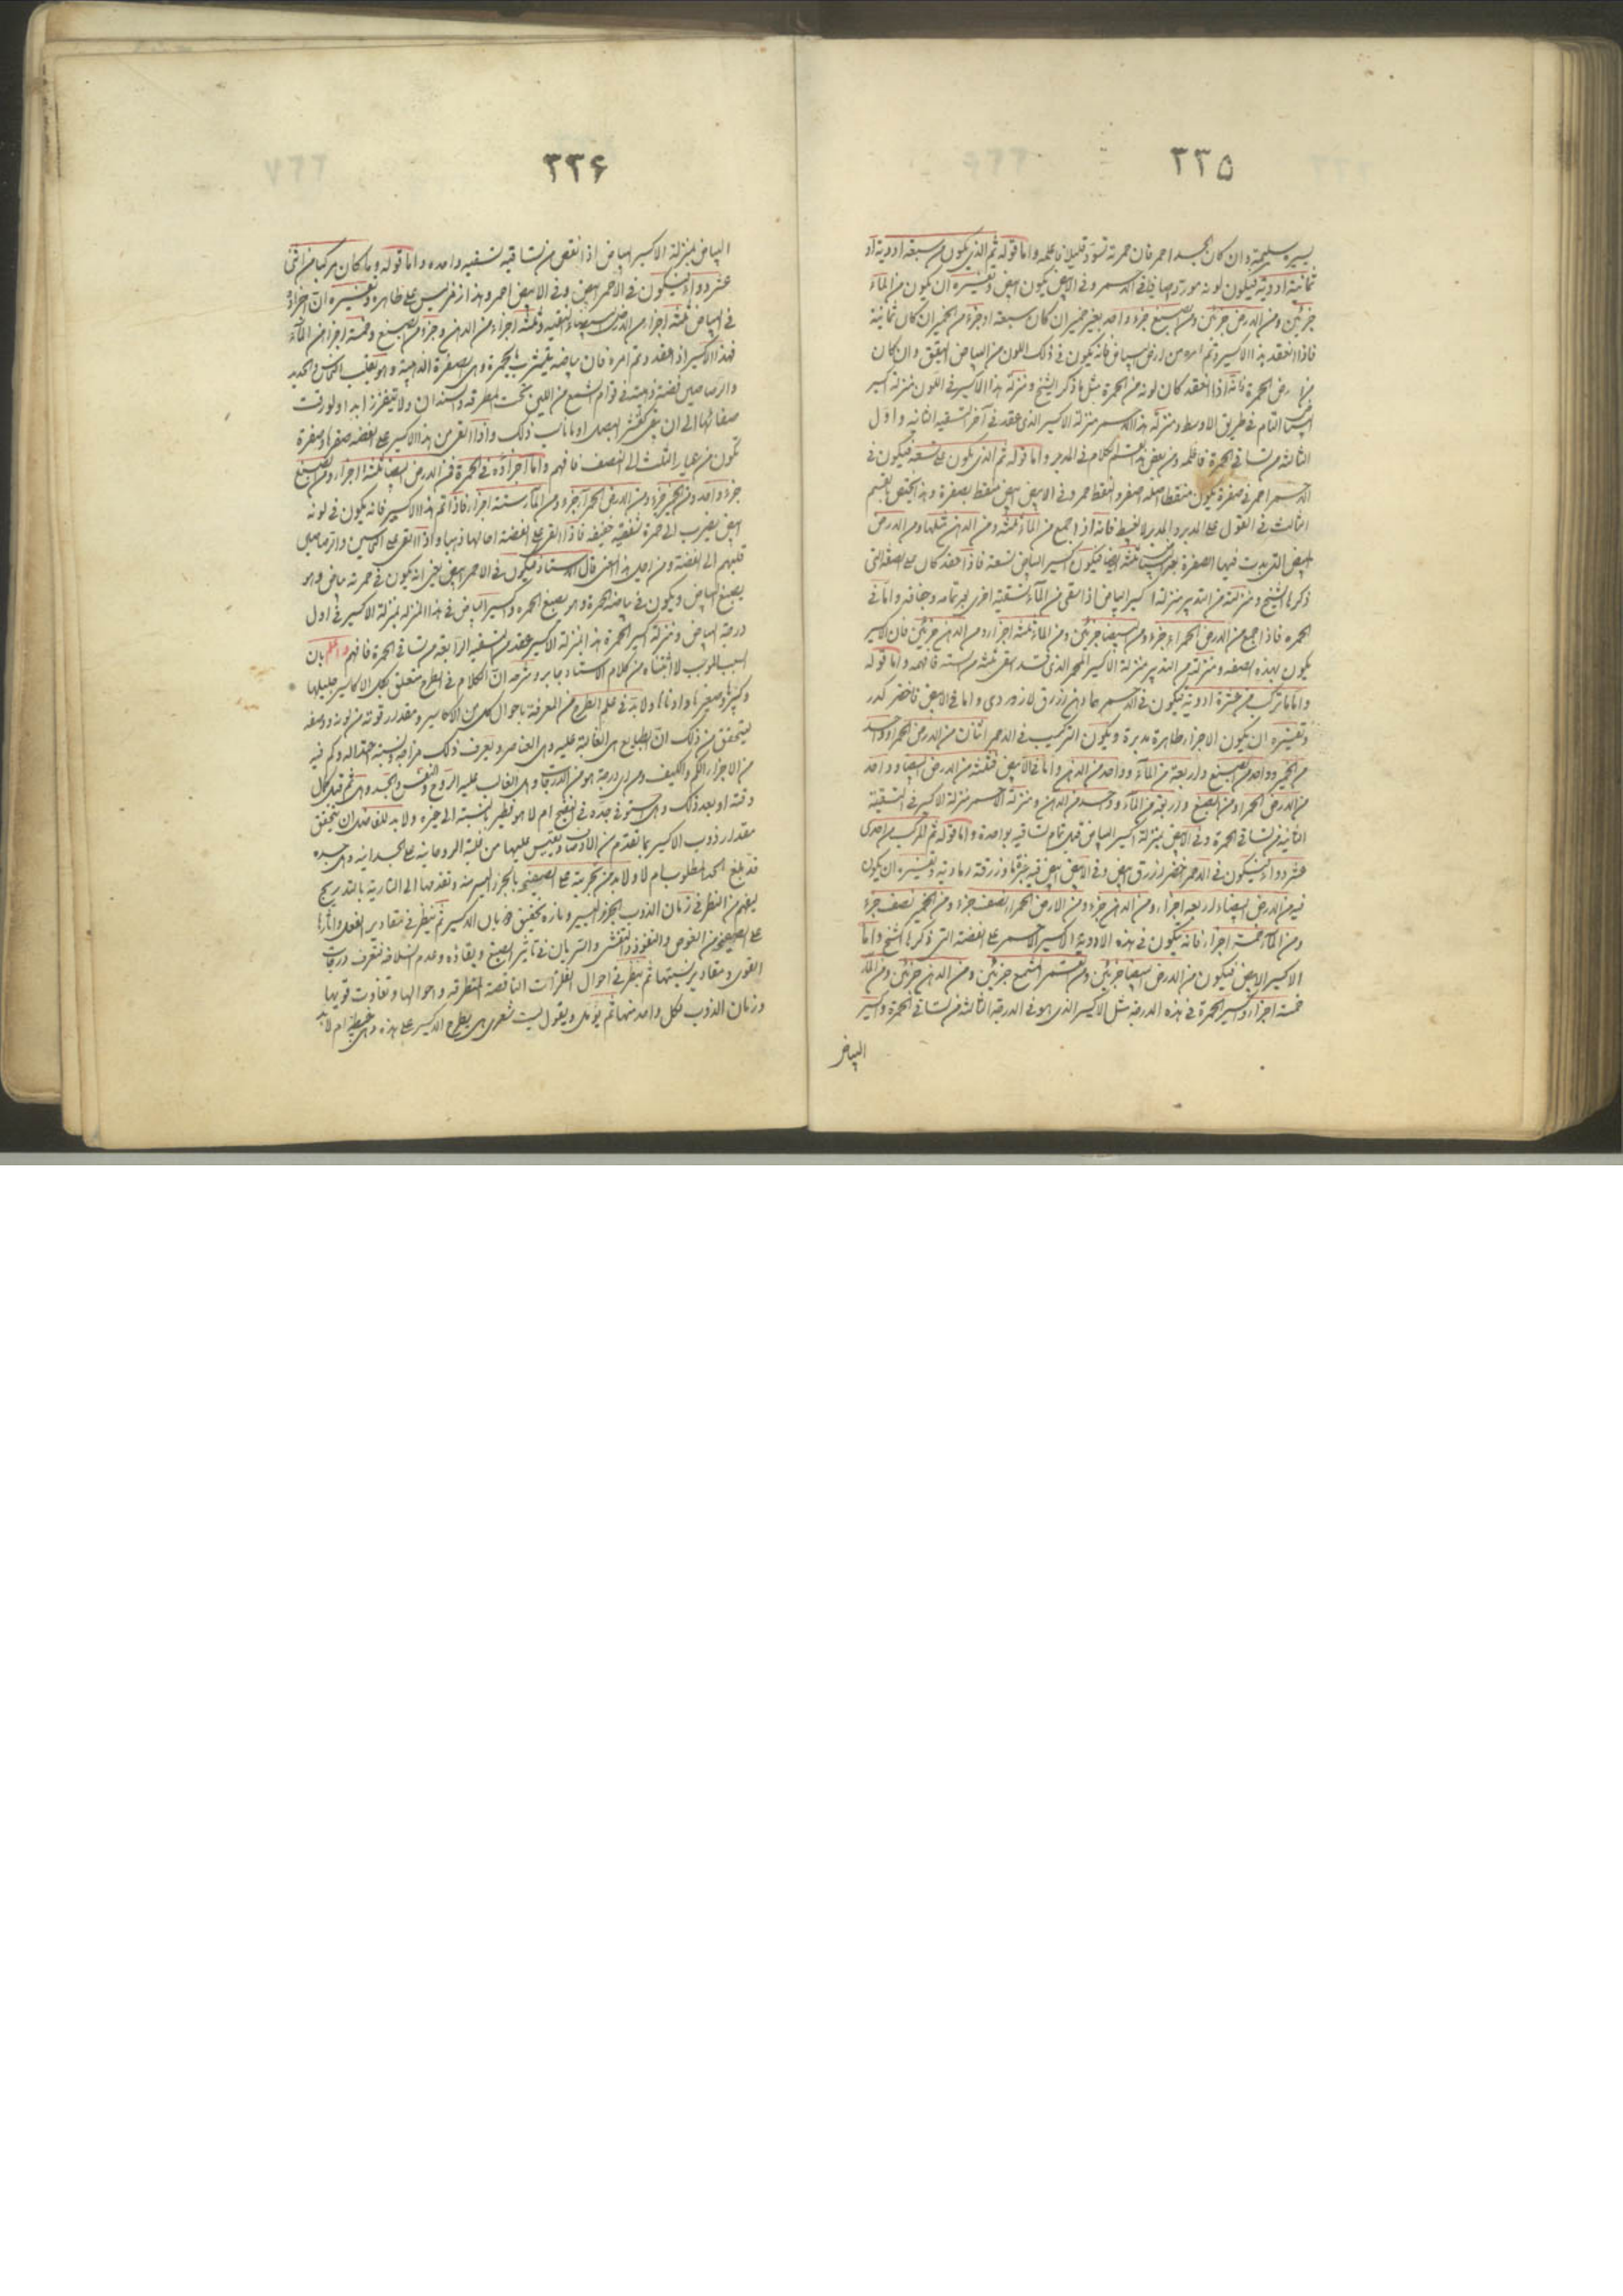 ٣٣٥
يسير سليمة وان كان الجسد احمر فان حمرته تسود قليلا فاعلمه واما قوله ثم الذي يكون من سبعة ادوية او
ثمانية ادوية فيكون لونه موردا صافيا في الاحمر وفي الابيض يكون ابيض وتفسيره ان يكون من الماء
جزئين ومن الارض جزئين ومن الصبغ جزء واحد بغير خمير ان كان سبعة او جزء من الخمير ان كان ثمانية
فاذا انعقد هذا الاكسير وتم امره من ارض البياض فانه يكون في ذلك اللون من البياض اليقق وان كان
من ارض الحمرة فانه اذا انعقد كان لونه من الحمرة مثل ما ذكر الشيخ ومنزلة هذا الاكسير في اللون منزلة اكسير
البياض التام في طريق الاوسط ومنزلة هذا الاحمر منزلة الاكسير الذي عقد في آخر التسقية الثانية واول
الثالثة من تساقي الحمرة فاعلمه ومن بعض هذا القسم الكلام في المدبر واما قوله ثم الذي يكون على تسعة فيكون في
الاحمر احمر في صفرة يكون منقطا اصله اصفر والنقط حمر وفي الابيض ابيض منقط بصفرة وهذا يختص بالقسم
الثالث في القول على المدبر والمدبر الغبيط فانه اذا جمع من الماء ثلثة ومن الدهن مثلها ومن الارض
البيض التي بدت فيها الصفرة ثلثة ايضا فيكون اكسير البياض تسعة فاذا عقد كان على الصفة التي
ذكرها الشيخ ومنزلته من التدبير منزلة اكسير البياض اذا بقي من الماء تسقية اخرى لتمامه وجفافه واما في
الحمرة فاذا جمع من الارض الحمراء جزء ومن البيضا جزئين ومن الماء ثلثة اجزاء ومن الدهن جزئين فان الاكسير
يكون بهذه الصفة ومنزلته من التدبير منزلة الاكسير المحمر الذي قد بقي ثلثة من ستة فافهمه واما قوله
واما ما تركب من عشرة ادوية فيكون في الاحمر ازرق لازوردي واما في الابيض فاخضر كدر
وتفسيره ان يكون الاجزاء طاهرة مدبرة ويكون التركيب في الاحمر اثنان من الارض الحمراء وواحد
من الخمير وواحد من الصبغ واربعة من الماء وواحد من الدهن واما في الابيض فثلثة من الارض البيضا وواحد
من الارض الحمراء ومن الصبغ واربعة من الماء وواحد من الدهن ومنزلة الاحمر منزلة الاكسير في التسقية
الثانية من تساقي الحمرة وفي الابيض بمنزلة اكسير البياض قبل تمام تساقيه بواحدة واما قوله ثم المركب من احدى
عشر دواء فيكون في الاحمر اخضر ازرق ابيض وفي الابيض ابيض فيه خزقة او زرقة رمادية وتفسيره ان يكون
فيه من الارض البيضاء اربعة اجزاء ومن الدهن جزء ومن الارض الحمراء نصف جزء ومن الخمير نصف جزء
ومن الماء خمسة اجزاء فانه يتكون في هذه الادوية الاكسير الاحمر على الصفة التي ذكرها الشيخ واما
الاكسير الابيض فيكون من الارض البيضا جزئين ومن القمر المشمع جزئين ومن الدهن جزئين ومن الماء
خمسة اجزاء واكسير الحمرة في هذه الدرجة مثل الاكسير الذي هو في الدرجة الثالثة من تساقي الحمرة واكسير
البياض
٣٣۶
البياض بمنزلة الاكسير البياض اذا نقص من تساقيه تسقية واحدة واما قوله وما كان مركبا من اثنى
عشر دواء فيكون في الاحمر ابيض وفي الابيض احمر وهذا رمز ليس على ظاهره وتفسيره ان اجزاؤه
في البياض ثلثة اجزاء من الارض البيضاء النقية وثلثة اجزاء من الدهن وجزء من الصبغ وخمسة اجزاء من الماء
فهذا الاكسير اذا انعقد وتم امره فان بياضه يتشرب بالحمرة وهي الصفرة الذهبية وهو يقلب النحاس والحديد
والرصاصين فضة ذهبية في قوام الشمع من اللين تحت المطرقة والسندان ولا يتفزز ابدا ولو رقت
صفائحها الى ان تبقى كقشر البصل او ما ناسب ذلك واذا القي من هذا الاكسير على الفضة صفرها صفرة
تكون من عيار الثلث الى النصف فافهم واما اجزاؤه في الحمرة فمن الارض البيضا ثلثة اجزاء ومن الصبغ
جزء واحد ومن الخمير جزء ومن الارض الحمراء جزء ومن الماء ستة اجزاء فاذا تم هذا الاكسير فانه يكون في لونه
ابيض يضرب الى حمرة شفقية خفيفة فاذا القي على الفضة احالها ذهبا واذا القي على النحاسين والرصاصين
قلبهم الى الفضة ومن اجل هذا المعنى قال الاستاذ فيكون في الاحمر ابيض يعني انه يكون في حمرته بياض وهو
يصبغ البياض ويكون في بياضه الحمرة وهو يصبغ الحمرة واكسير البياض في هذا المنزلة بمنزلة الاكسير في اول
درجة البياض ومنزلة اكسير الحمرة هذا بمنزلة الاكسير عقد من التسقية الرابعة من تساقي الحمرة فافهم واعلم بان
السبب الموجب لاثبتناه من كلام الاستاد جابر وشرحه ان الكلام في الطرح متعلق بكل الاكاسير جليلها
وكبيرها وصغيرها وادناها ولا بد في علم الطرح من المعرفة باحوال كل من الاكاسير ومقدار قوته من لونه ووصفه
ليتحقق من ذلك ان الطبايع هي الغالبة عليه وهي العناصر ويعرف ذلك مزاجه ونسبة اعتداله وكم فيه
من الاجزاء الكم والكيف وفي اي درجة هو من الدرجات وهل الغالب عليه الروح والنفس والجسد وهل تم قبل كمال
وقته او بعد ذلك وهل استوفى جده في النضج ام لا هو نظير بالنسبة الى خيره ولا بد للفاضل ان يتحقق
مقدار ذوب الاكسير بما تقدم من الاوصاف ويقيس عليها من غلبة الروحانية على الجسدانية وهل جسده
قد بلغ الحد المطلوب ام لا ولا بد من تجربته على الصفيحة بالجزء اليسير منه وتقديمها الى النارية بالتدريج
ليفهم من النظر في زمان الذوب الجزء اليسير وبازه تحقيق جريان الاكسير ثم ينظر في مقادير الفعل واثارها
على الصفيحة من الغوص والنفوذ والتفشي والسريان في تأثير الصبغ وبقاؤه وعدم انسلاخه فتعرف درجات
القوى ومقادير نسبتها ثم ينظر في احوال الفلزات الناقصة المتطرقة واحوالها وتفاوت قويها
وزمان الذوب لكل واحد منها ثم يؤمل ويقول ليت شعري هل يطرح الاكسير على هذه وهي غبيطة ام لا بد